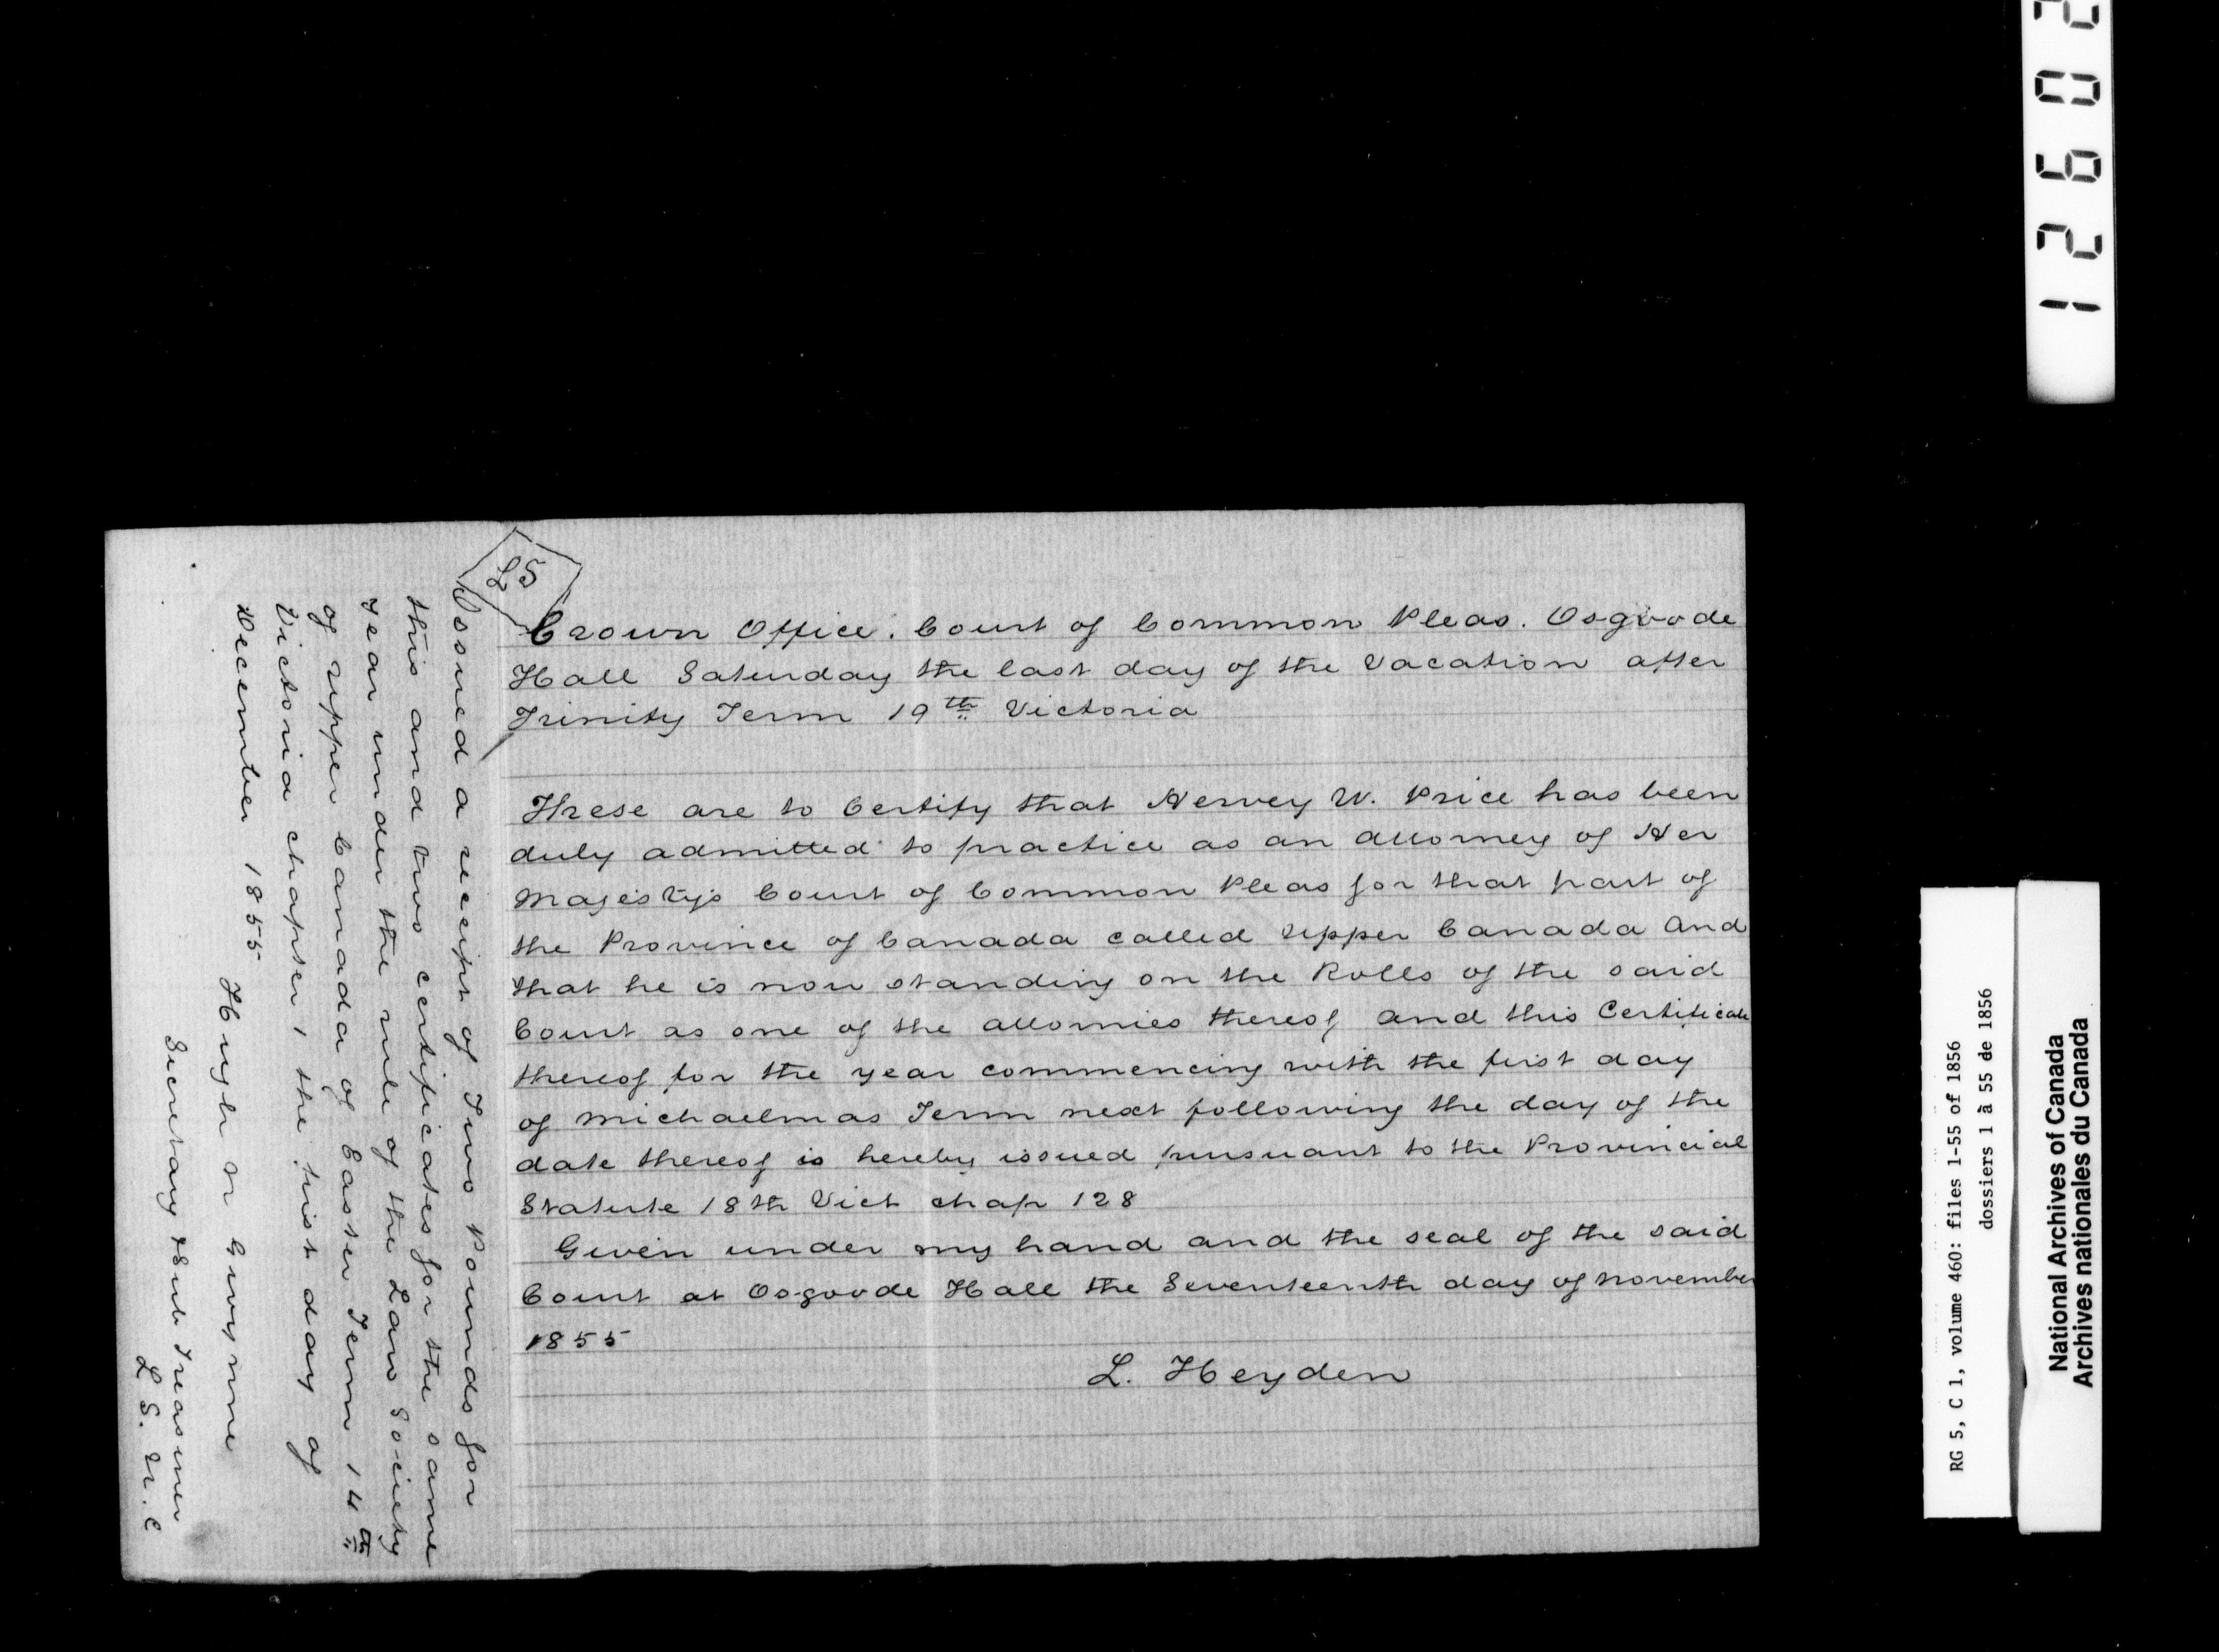 LS
Crown Office. Court of Common Pleas. Osgoode
Hall Saturday the last day of the Vacation after
Trinity Term 19th Victoria
These are to Certify that Hervey W. Price has been
duly admitted to practice as an attorney of Her
Majesty's Court of Common Pleas for that part of
the Province of Canada called Upper Canada And
that he is now standing on the Rolls of the said
Court as one of the attornies thereof and this Certificate
thereof for the year commencing with the first day
of Michaelmas Term next following the day of the
date thereof is hereby issued pursuant to the Provincial
Statute 18th Vict chap 128
Given under my hand and the seal of the said
Court at Osgoode Hall the Seventeenth day of November
1855
L. Heyden
Issued a receipt of Two Pounds for
this and two certificates for the same
Year under the rule of the Law Society
of Upper Canada of Easter Term 14th
Victoria chapter 1 the first day of
December 1855
Hugh N Gwynne
Secretary & Sub Treasurer
L S. U. C
12602
RG 5, C 1, volume 460: files 1-55 of 1856
dossiers 1 à 55 de 1856
National Archives of Canada
Archives nationales du Canada